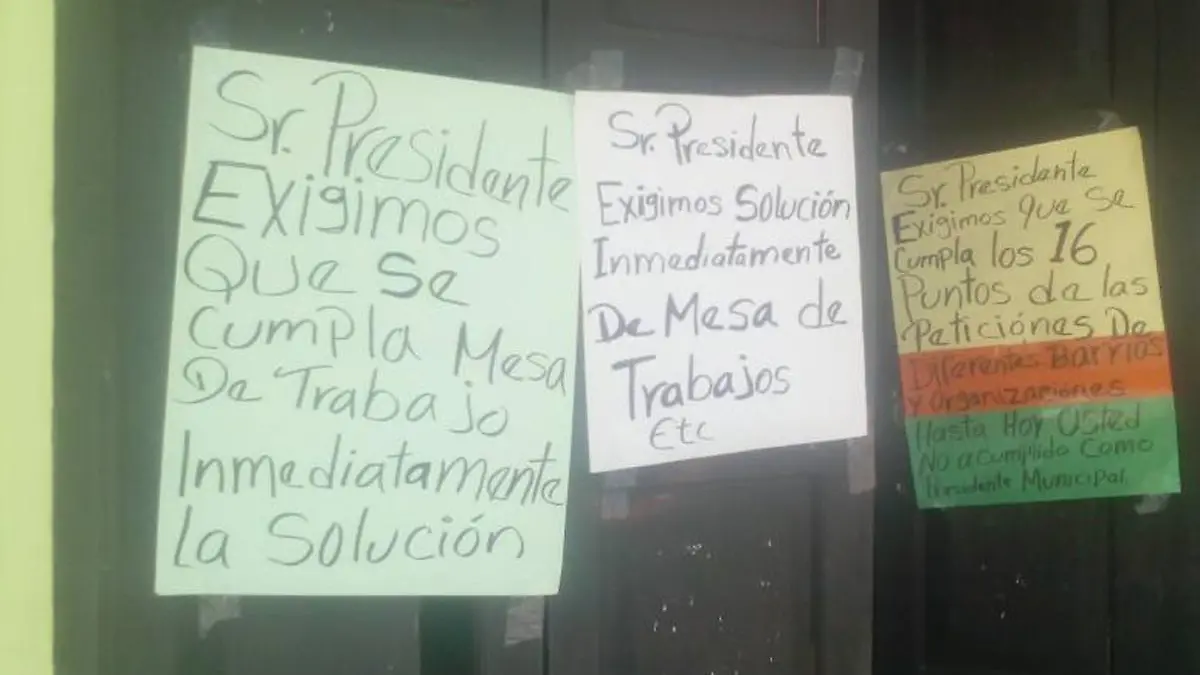 Sr. Presidente
Exigimos
Que se
Cumpla Mesa
De Trabajo
Inmediatamente
La Solución
Sr. Presidente
Exigimos Solución
Inmediatamente
De Mesa de
Trabajos
Etc
Sr. Presidente
Exigimos que se
Cumpla los 16
Puntos de las
Peticiónes De
Diferentes Barrios
y Organizaciónes
Hasta Hoy Usted
No a cumplido Como
Presidente Municipal.